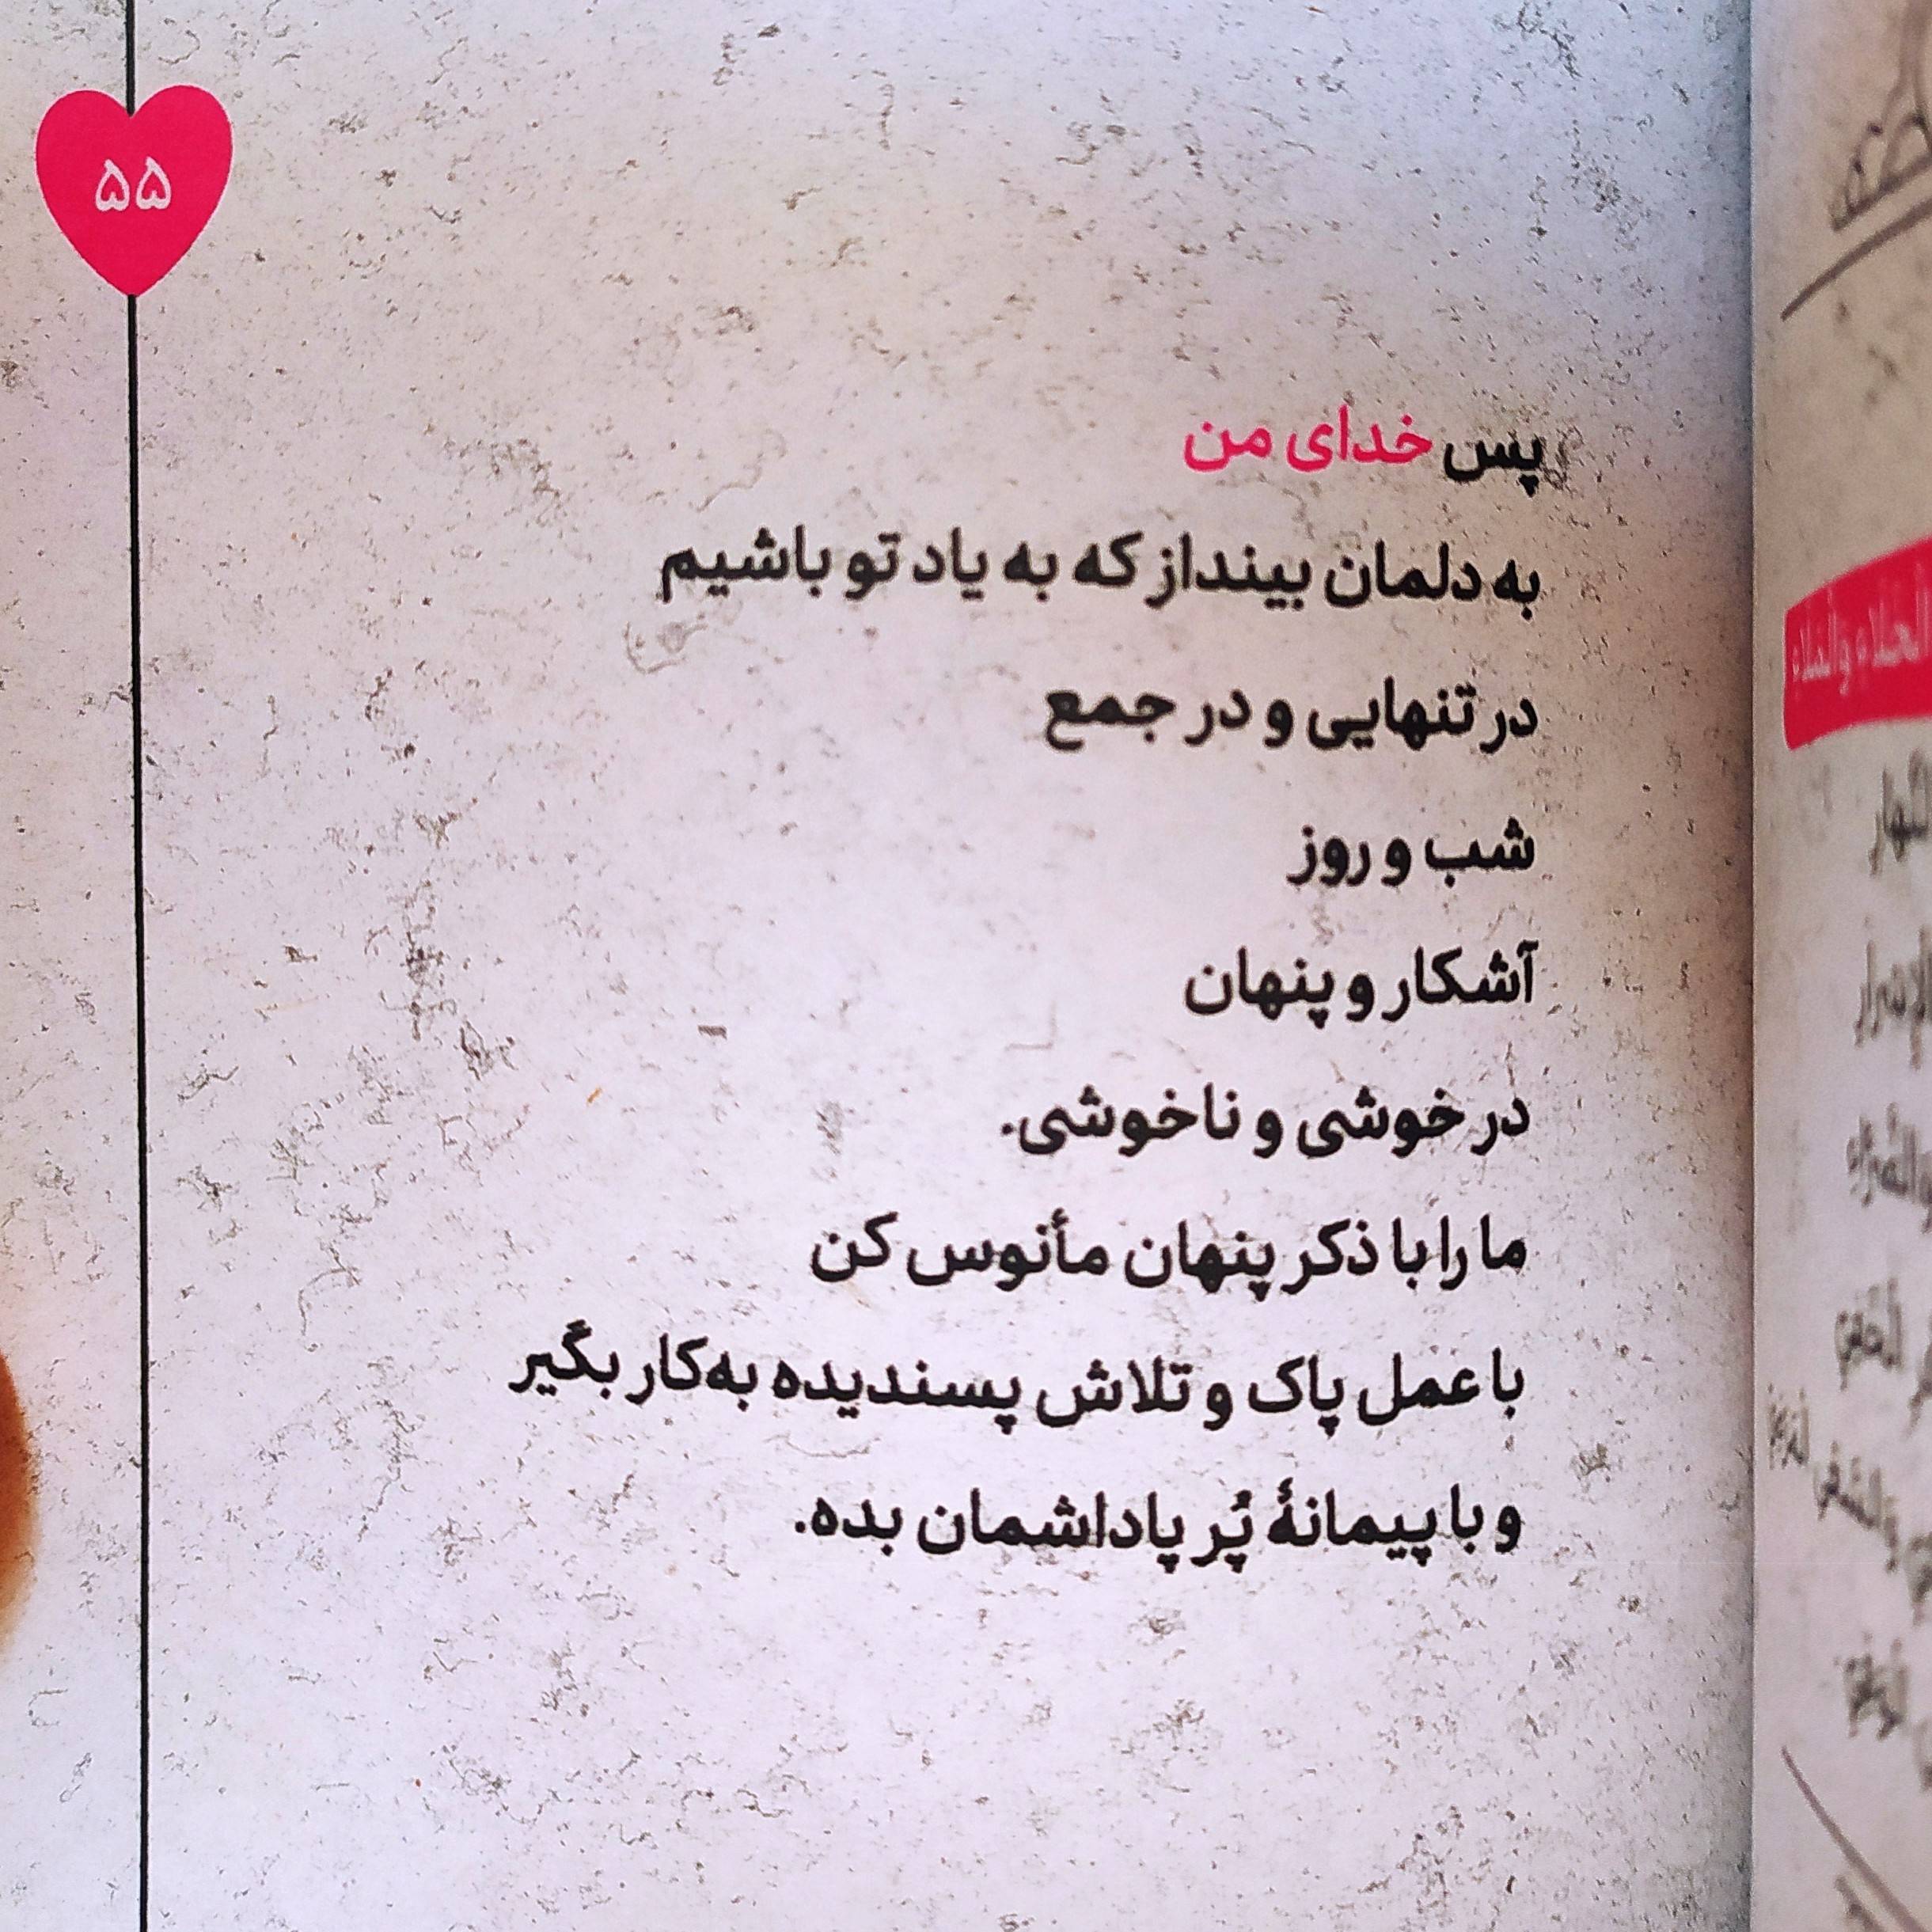 ۵۵
پس خدای من
به دلمان بینداز که به یاد تو باشیم
در تنهایی و در جمع
شب و روز
آشکار و پنهان
در خوشی و ناخوشی.
ما را با ذکر پنهان مأنوس کن
با عمل پاک و تلاش پسندیده به‌کار بگیر
و با پیمانهٔ پُر پاداشمان بده.